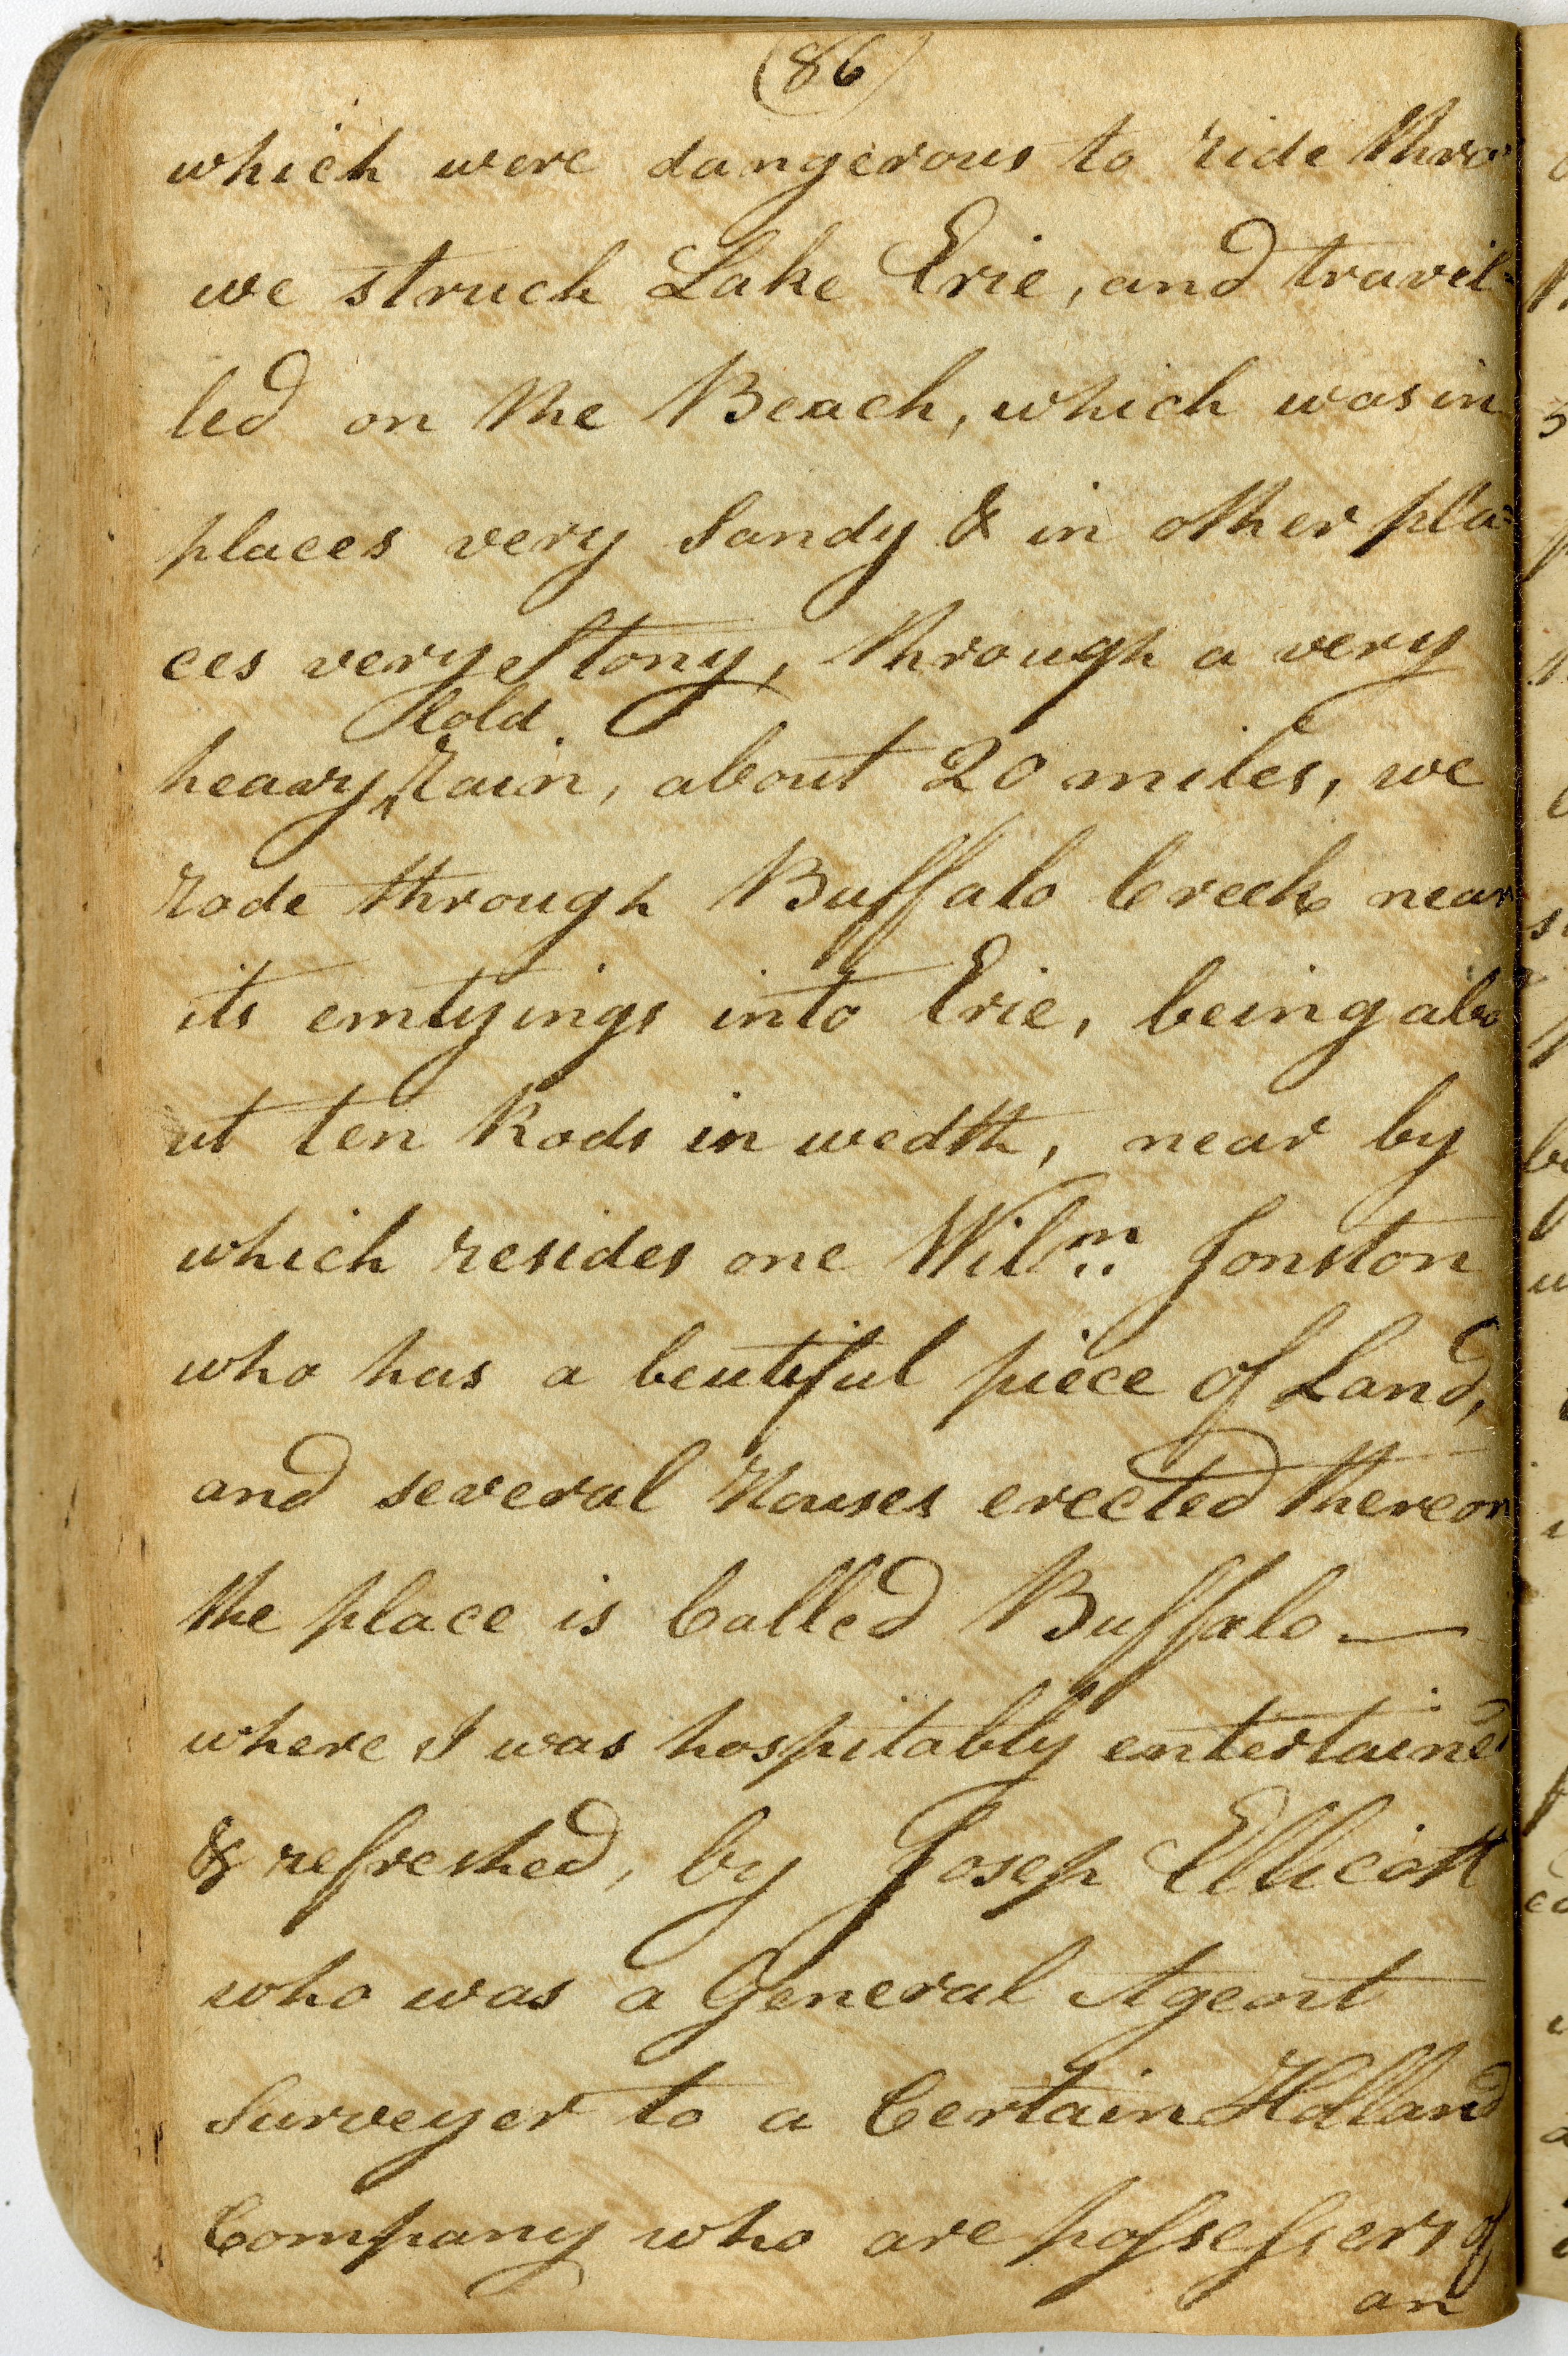 (86)
which were dangerous to ride thro
we struck Lake Erie, and travil=
led on the Beach, which was in
places very Sandy & in other pla=
ces very Stony, through a very
Cold
heavy ^ Rain, about 20 miles, we
rode through Buffalo Creek near
its emtyings into Erie, being abo
ut ten Rods in wedth, near by
which resides one Wilm Jonston
who has a beutiful piece of Land,
and several Houses erected thereon
the place is Called Buffalo —
where I was hospitably entertained
& refreshed, by Josep Ellicott
who was a General Agent
Surveyer to a Certain Holland
Company who are possessers of
an